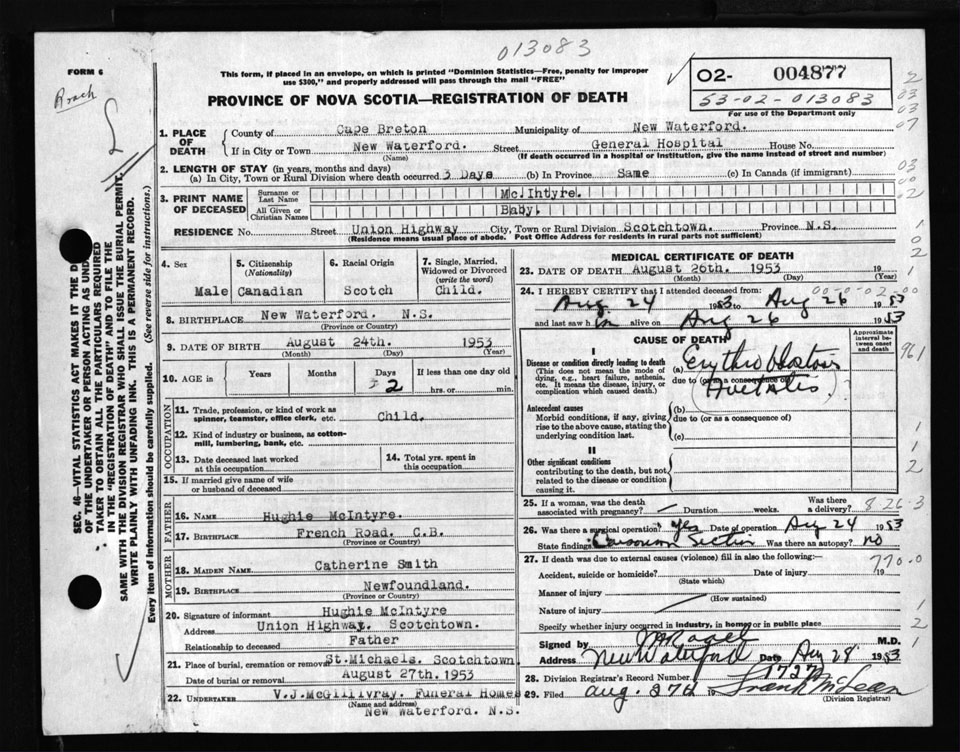 013083
FORM 6
This form, if placed in an envelope, on which is printed "Dominion Statistics—Free, penalty for improper
use $300," and properly addressed will pass through the mail "FREE"
PROVINCE OF NOVA SCOTIA—REGISTRATION OF DEATH
02- 004877
53-02-013083
For use of the Department only
1. PLACE OF DEATH
County of Cape Breton Municipality of New Waterford.
If in City or Town New Waterford. Street General Hospital House No.
(Name) (If death occurred in a hospital or institution, give the name instead of street and number)
2. LENGTH OF STAY (in years, months and days)
(a) In City, Town or Rural Division where death occurred 3 Days (b) In Province Same (c) In Canada (if immigrant)
3. PRINT NAME OF DECEASED
Surname or Last Name McIntyre.
All Given or Christian Names Baby.
RESIDENCE No. Street Union Highway City, Town or Rural Division Scotchtown. Province N.S.
(Residence means usual place of abode. Post Office Address for residents in rural parts not sufficient)
4. Sex Male
5. Citizenship (Nationality) Canadian
6. Racial Origin Scotch
7. Single, Married, Widowed or Divorced (write the word) Child.
8. BIRTHPLACE New Waterford. N.S.
(Province or Country)
9. DATE OF BIRTH August 24th. 1953
(Month) (Day) (Year)
10. AGE in Years Months Days 2 If less than one day old
hrs. or min.
OCCUPATION
11. Trade, profession, or kind of work as
spinner, teamster, office clerk, etc. Child.
12. Kind of industry or business, as cotton-
mill, lumbering, bank, etc.
13. Date deceased last worked
at this occupation
14. Total yrs. spent in
this occupation
15. If married give name of wife
or husband of deceased
FATHER
16. NAME Hughie McIntyre.
17. BIRTHPLACE French Road. C.B.
(Province or Country)
MOTHER
18. MAIDEN NAME Catherine Smith
19. BIRTHPLACE Newfoundland.
(Province or Country)
20. Signature of informant Hughie McIntyre
Address Union Highway. Scotchtown.
Relationship to deceased Father
21. Place of burial, cremation or removal St.Michaels. Scotchtown
Date of burial or removal August 27th.1953
22. UNDERTAKER V.J.McGillivray. Funeral Homes
(Name and address)
New Waterford. N.S.
MEDICAL CERTIFICATE OF DEATH
23. DATE OF DEATH August 26th. 1953 19
(Month) (Day) (Year)
24. I HEREBY CERTIFY that I attended deceased from: 00-0-02-00
Aug 24 1953 to Aug 26 1953
and last saw him alive on Aug 26 1953
CAUSE OF DEATH
Approximate interval between onset and death
I
Disease or condition directly leading to death
(This does not mean the mode of
dying, e.g., heart failure, asthenia,
etc. It means the disease, injury, or
complication which caused death.)
(a) Erythroblastosis
due to (or as a consequence of)
Foetalis
Antecedent causes
Morbid conditions, if any, giving
rise to the above cause, stating the
underlying condition last.
(b)
due to (or as a consequence of)
(c)
II
Other significant conditions
contributing to the death, but not
related to the disease or condition
causing it.
25. If a woman, was the death
associated with pregnancy? Duration weeks. Was there a delivery? 826-3
26. Was there a surgical operation? Yes Date of operation Aug 24 1953
State findings Caesarian Section Was there an autopsy? no
27. If death was due to external causes (violence) fill in also the following:—
Accident, suicide or homicide? Date of injury 19
(State which)
770-0
Manner of injury
(How sustained)
Nature of injury
Specify whether injury occurred in industry, in home, or in public place
Signed by M.D.
Address New Waterford Date Aug 28 1953
28. Division Registrar's Record Number 172
29. Filed Aug. 27th 19 Frank McLean
(Division Registrar)
SEC. 46—VITAL STATISTICS ACT MAKES IT THE
OF THE UNDERTAKER OR PERSON ACTING AS UND
TAKER TO OBTAIN ALL THE PARTICULARS REQUIRED
IN THE "REGISTRATION OF DEATH" AND TO FILE THE
SAME WITH THE DIVISION REGISTRAR WHO SHALL ISSUE THE BURIAL PERMIT.
WRITE PLAINLY WITH UNFADING INK. THIS IS A PERMANENT RECORD.
Every item of information should be carefully supplied. (See reverse side for instructions.)